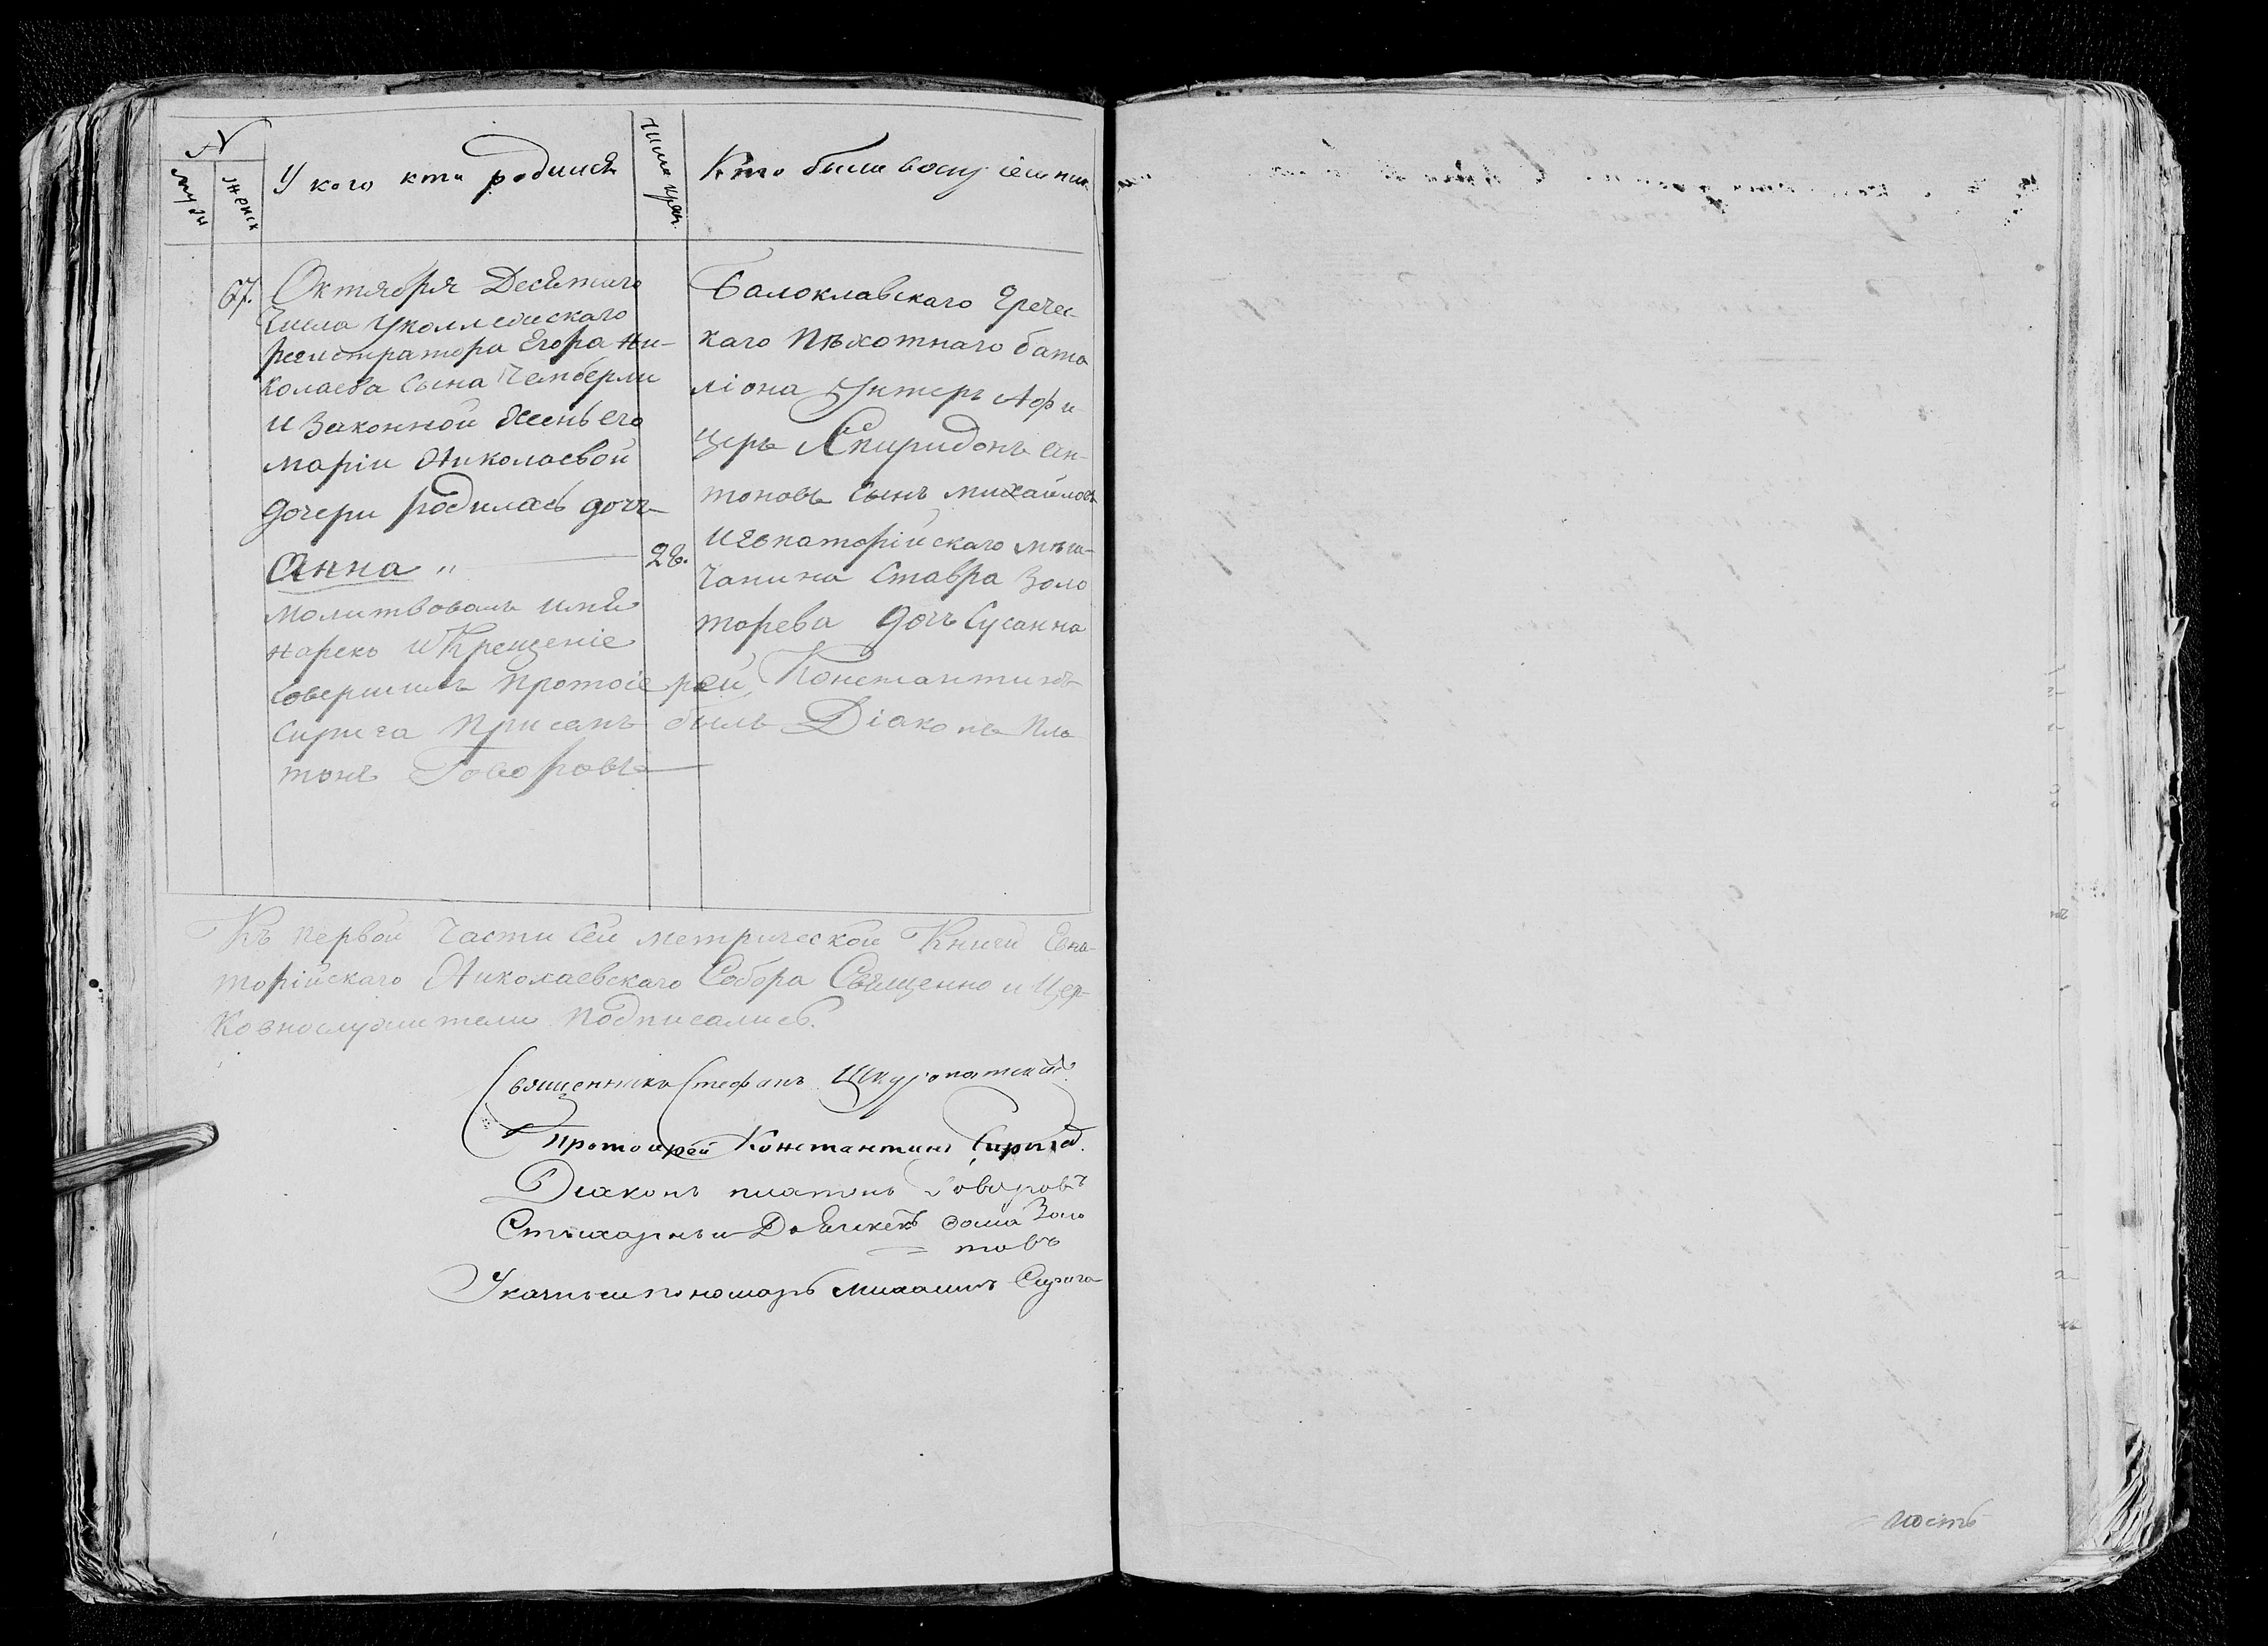 N
муж
женск
У кого кто родился
Число крещ.
Кто были воспріемники
67.
Октября Десятаго
Числа уколлежскаго
регистратора Егора Ни-
колаева Сына Чемберли
и Законной Жены его
Маріи Николаевой
дочери родилась дочь
Анна „
28.
Молитвовалъ имя
нарекъ и Крещеніе
совершилъ Протоіерей Константинъ
Сирига Присемъ былъ Діаконъ Пла
тонъ Говоровъ
Балоклавскаго Гречес-
каго Пѣхотнаго бата
ліона Унтеръ Афи
церъ Спиридонъ Ан-
тоновъ Сынъ Михайловъ
и Евпаторійскаго мѣщ-
чанина Ставра Золо
торева дочь Сусанна
Къ первой Части Сей метрической Книги Евпа-
торійскаго Николаевскаго Собора Священно и Цер-
ковнослужители Подписались.
Священникъ Стефанъ
Протоиерей Константинъ Сирига.
Диаконъ платонъ Говоровъ
Стихарный Зо
товъ
пономарь Михаилъ Сирига
ность